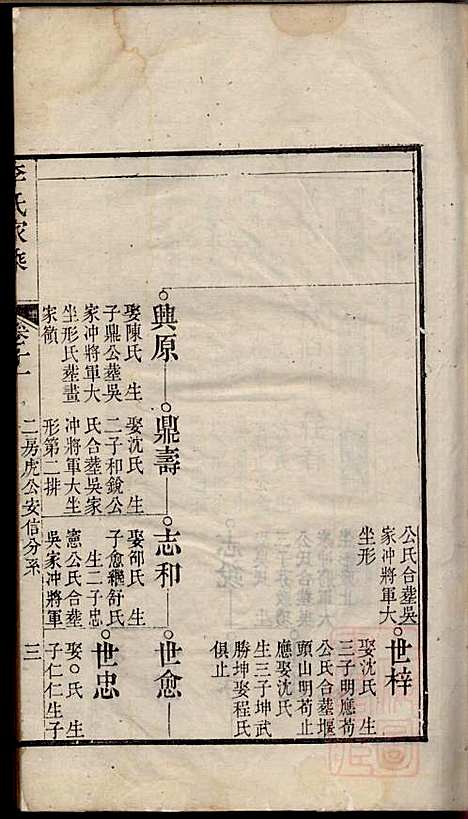 公氏合塟吳
家冲將軍大
坐形
世梓
娶沈氏 生
三子明應苟
公氏合塟堰
頭山明苟止
應娶沈氏
生三子坤武
勝坤娶程氏
俱止
興原
娶陳氏 生
子鼎公塟吳
家冲將軍大
坐形氏塟畫
家嶺
鼎壽
娶沈氏 生
二子和銳公
氏合塟吳家
冲將軍大生
形第二排
志和
娶邵氏 生
子愈繼舒氏
生二子忠
憲公氏合塟
吳家冲將軍
世愈
世忠
娶○氏 生
子仁仁生子
李氏家乘
卷十一
二房虎公安信分系
三